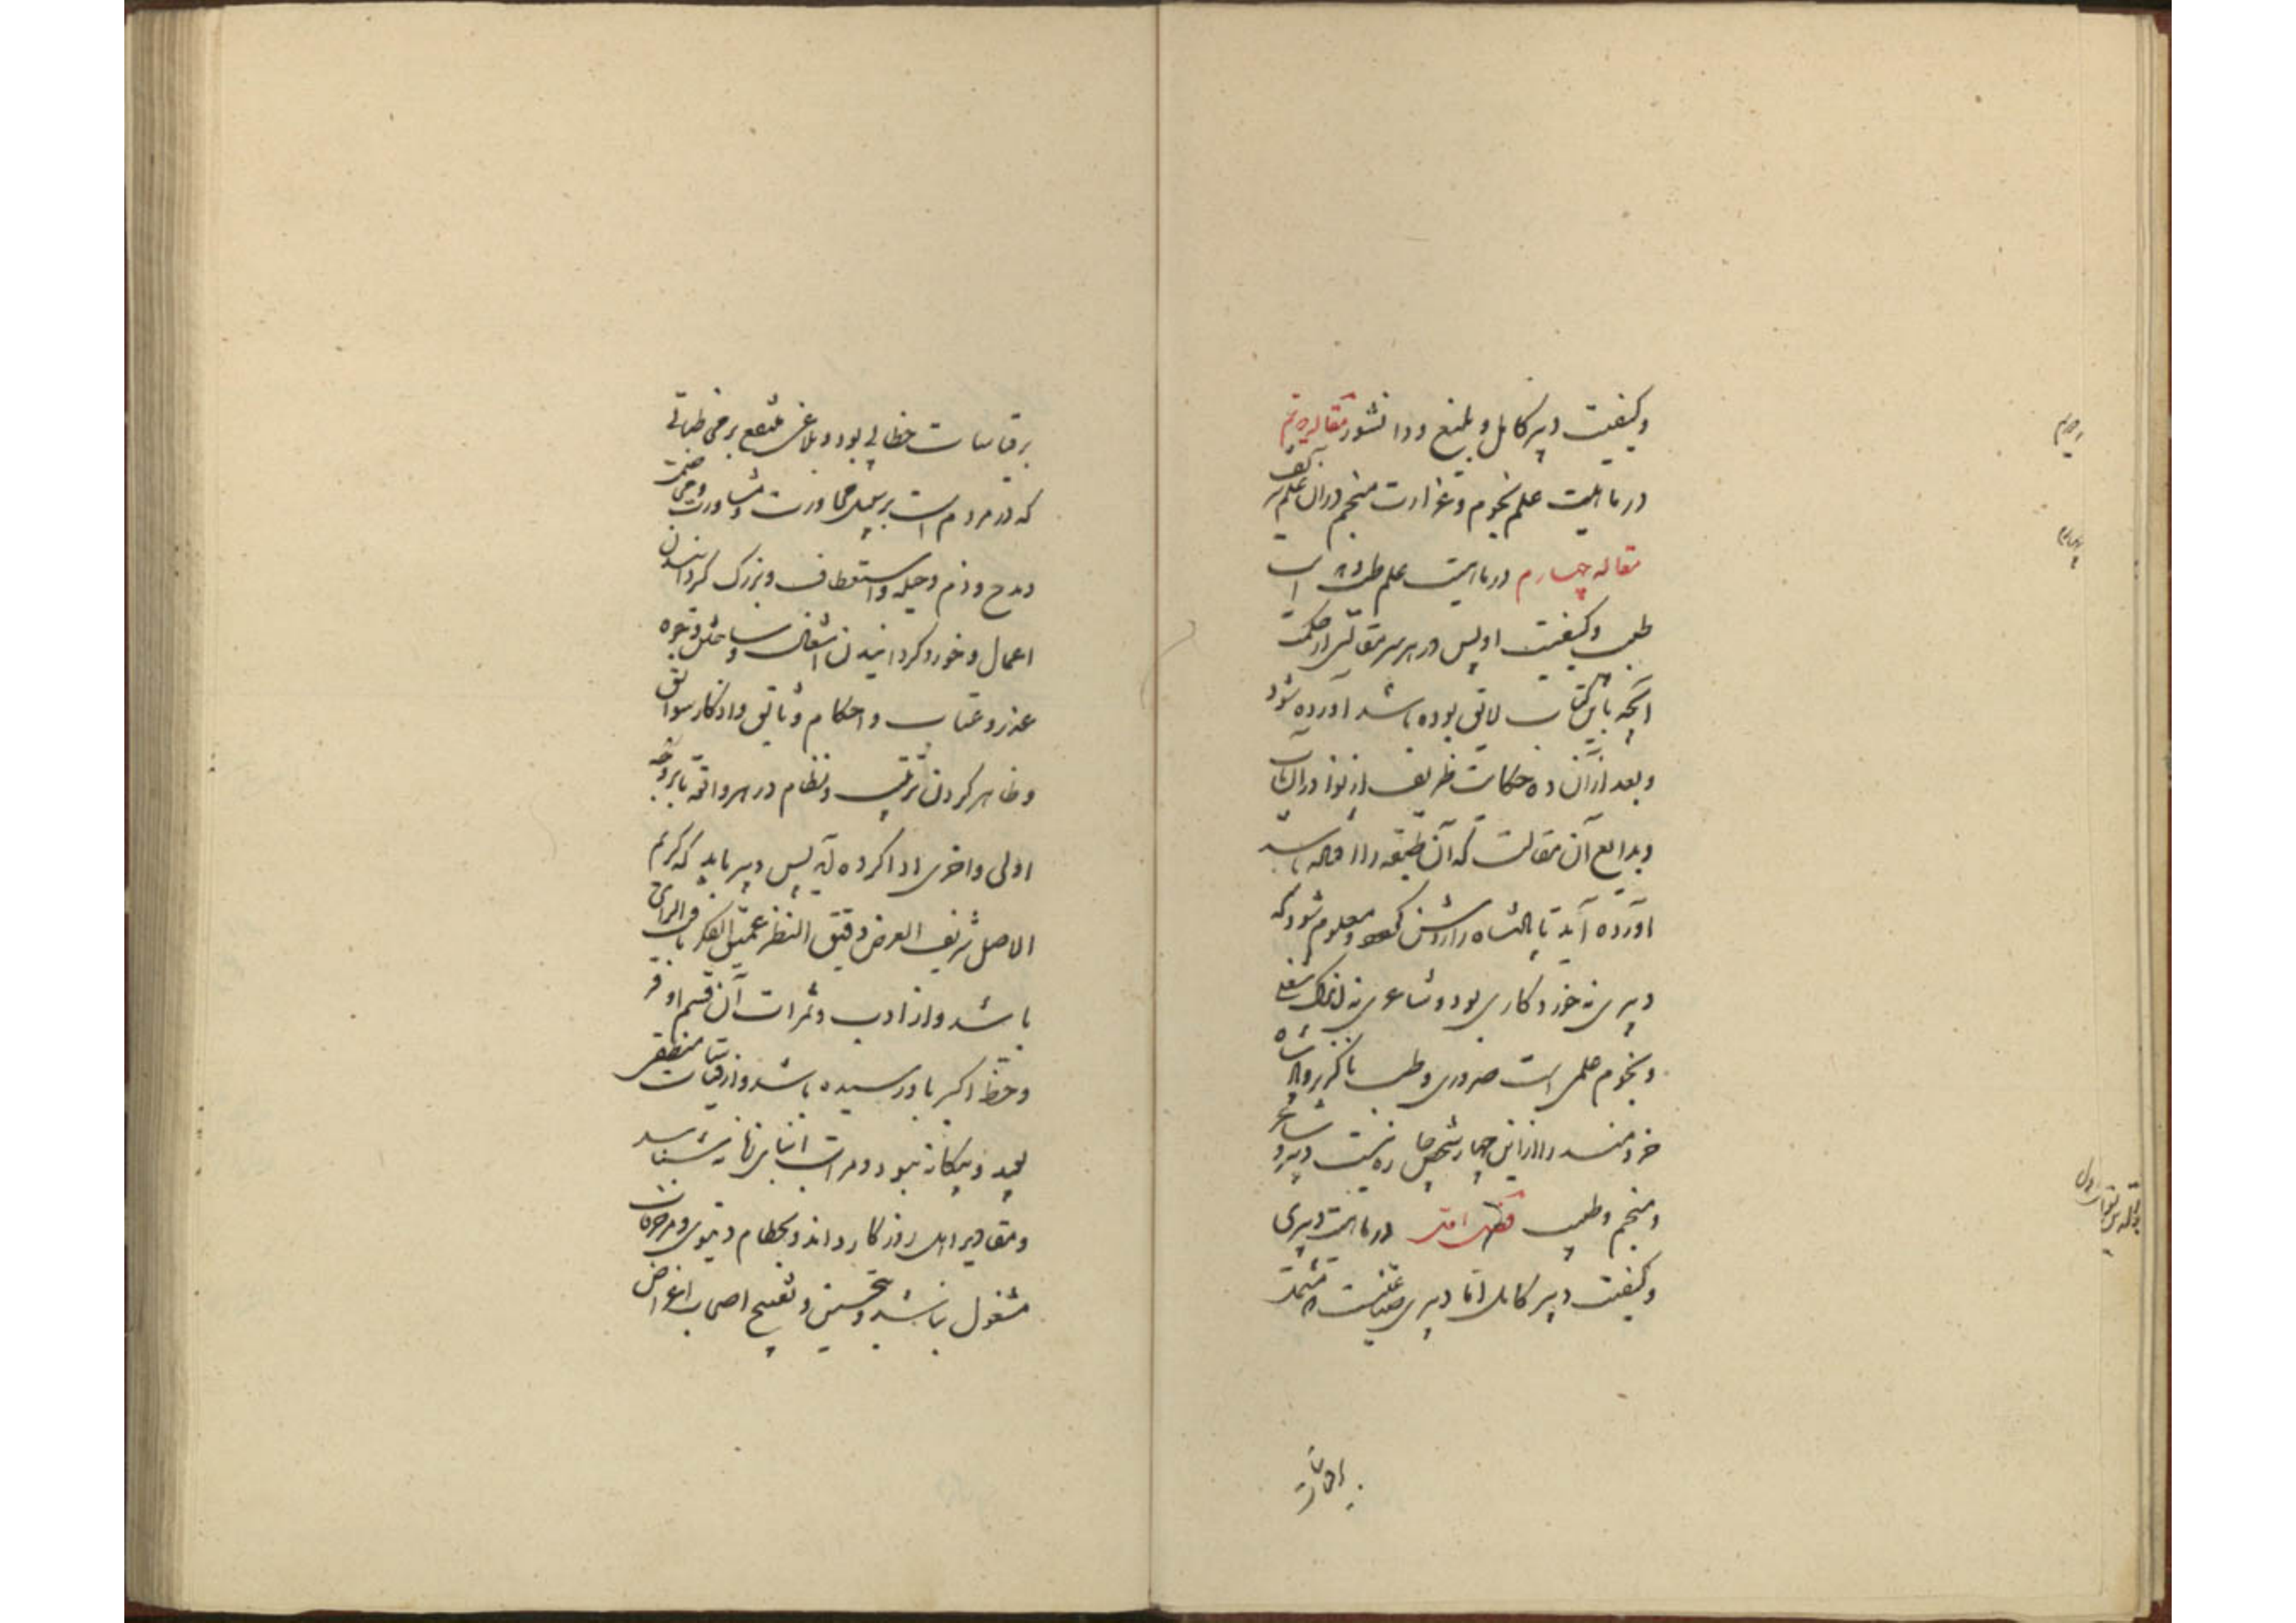 وکیفیت دبیر کامل و بلیغ و دانشور مقاله
در ماهیت علم نجوم و غزارت منجم در آن علم
مقاله چهارم در ماهیت علم طب و
طبیب و کیفیت او پس در هر مقالتی از حکمت
آنچه باین کتاب لایق بوده باشد آورده شود
و بعد از آن ده حکایت ظریف از نوادر آن باب
و بدایع آن مقالت که آن طبقه را افتاده باشد
آورده آید تا پادشاه را روشن و معلوم شود که
دبیری نه خورد کاری بود و شاعری نه اندک شغلی
و نجوم علمی است ضروری و طب ناگزیر و پادشاه
خردمند را از این چهار شخص چاره نیست دبیر و شاعر
و منجم و طبیب در ماهیت دبیری
و کیفیت دبیر کامل اما دبیری صناعتیست مشتمل
بر قیاسات
بر قیاسات خطابی بود و بلاغی منتفع بر مخاطباتی
که در مردم است بر سبیل محاورت و مشاورت و مخاصمت
و مدح و ذم و حیله و استعطاف و بزرگ گردانیدن
اعمال و خورد گردانیدن اشغال و ساختن وجوه
عذر و عتاب و احکام وثایق و اذکار سوابق
و ظاهر کردن ترتیب و نظام در هر واقعه تا بر وجه
اولی و احری ادا کرده آید پس دبیر باید که کریم
الاصل شریف العرض دقیق النظر عمیق الفکر ثاقب الرای
باشد و از ادب و ثمرات آن قسم اوفر
و حظ اکبر باو رسیده باشد و از قیاسات منطقی
بعید و بیگانه نبود و مراتب ابنای زمانه شناسد
و مقادیر اهل روزگار داند و بحطام دنیوی و مزخرفات
مشغول نباشد و بتحسین و تقبیح اصحاب اغراض